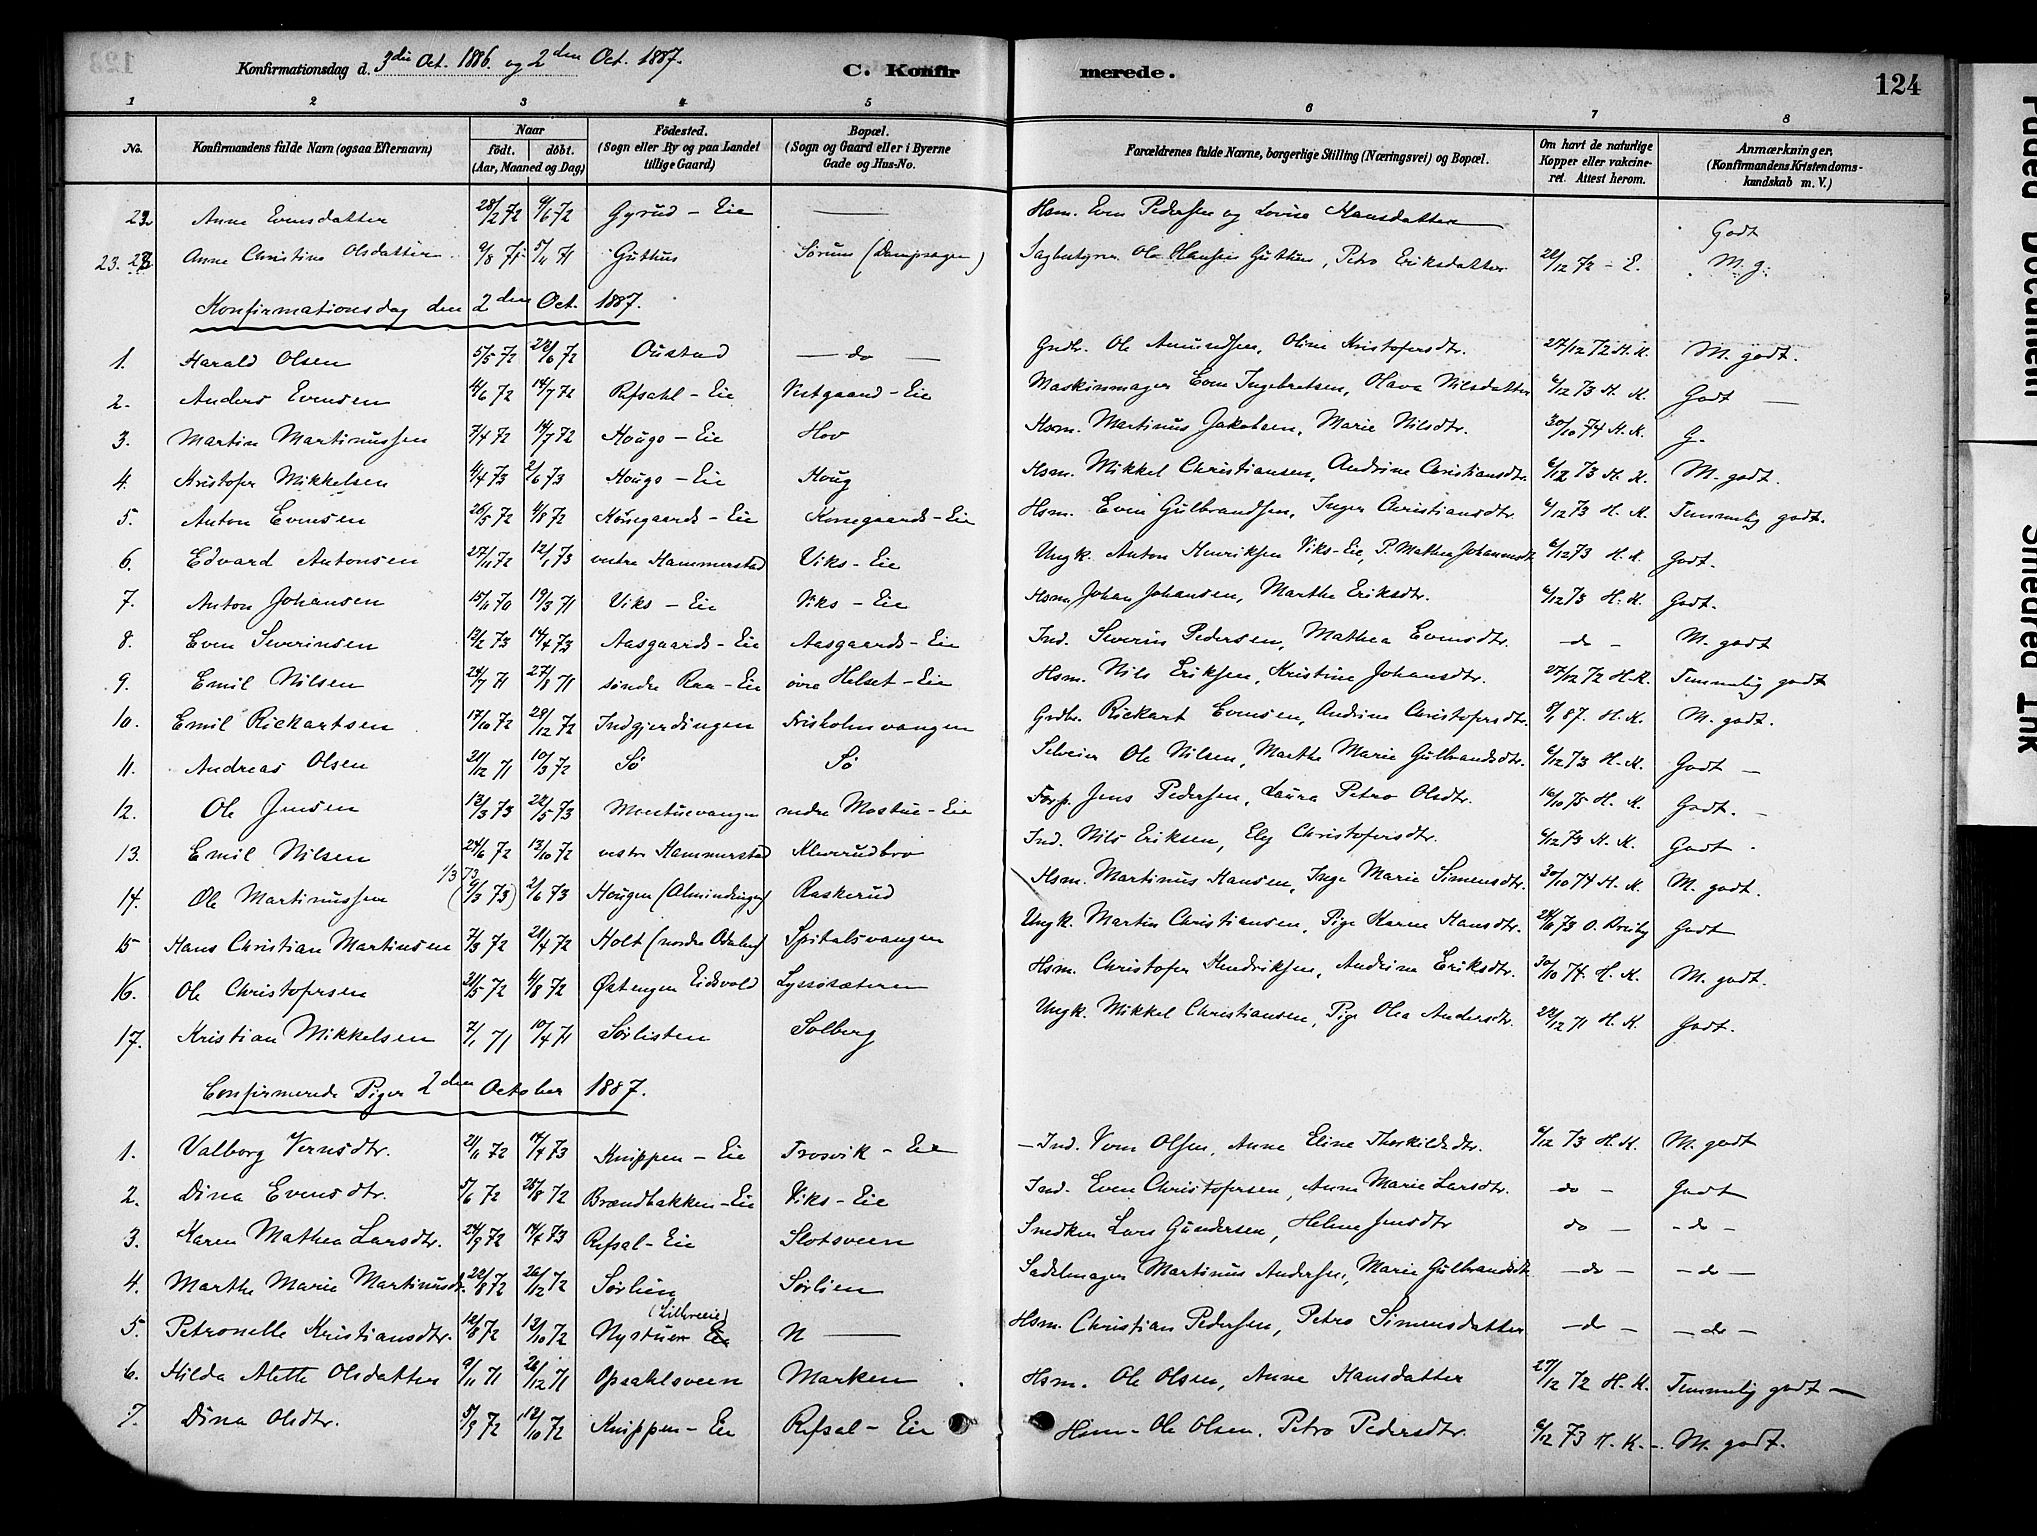 Konfirmationsdag d. 3die Oct. 1886. og 2den Oct. 1887.
C. Konfir merede. 124
1 2 3 4 5 6 7 8
No. Konfirmandens fulde Navn (ogsaa Efternavn) Naar födt. döbt. (Aar, Maaned og Dag) Födested. (Sogn eller By og paa Landet tillige Gaard) Bopæl. (Sogn og Gaard eller i Byerne Gade og Hus-No. Forældrenes fulde Navne, borgerlige Stilling (Næringsvei) og Bopæl. Om havt de naturlige Kopper eller vakcineret. Attest herom. Anmærkninger, (Konfirmandens Kristendomskundskab m. V.)
22 Anne Evensdatter 28/2 72 9/6 72 Gyrud - Eie — Hsm. Even Pedersen og Lovise Hansdatter Godt
23. Anne Christine Olsdatter 9/8 71 5/11 71 Guthus Sørum (Dampsagen) Sagbestyrer Ole Hansen Guthus, Petra Eriksdatter 20/12 72 - E. M. g.
Konfirmationsdag den 2den Oct. 1887.
1. Harald Olsen 5/5 72 22/6 72 Oustad — do — Grdbr. Ole Amundsen, Oline Kristofersdtr. 27/12 72 H. K. M. godt.
2. Anders Evensen 14/6 72 14/7 72 Refsahl - Eie Vestgaard - Eie Maskinmager Even Ingebretsen, Olava Nilsdatter 6/12 73 H. K. Godt —
3. Martin Martinussen 7/4 72 14/7 72 Hougs - Eie Hov Hsm. Martinus Jakobsen, Marie Nilsdtr. 30/10 74 H. K. G.
4. Kristofer Mikkelsen 4/4 73 2/6 73 Hougs - Eie Houg Hsm. Mikkel Christiansen, Andrine Christiansdtr. 6/12 73 H. K. M. godt.
5. Anton Evensen 26/5 72 4/8 72 Konsgaards - Eie Konsgaards - Eie Hsm. Even Gulbrandsen, Inger Christiansdtr. 6/12 73 H. K. Temmelig godt.
6. Edvard Antonsen 27/11 72 12/1 73 vestre Hammerstad Viks - Eie Ungk. Anton Henriksen Viks-Eie, P. Mathea Johannsdt. 6/12 73 H. K. Godt.
7. Anton Johansen 15/11 70 19/3 71 Viks - Eie Viks - Eie Hsm. Johan Johansen, Marthe Eriksdtr. 6/12 73 H. K. Godt.
8. Even Severinsen 12/2 73 14/4 73 Aasgaards - Eie Aasgaards - Eie Ind. Severin Pedersen, Mathea Evensdtr. — do — M. godt
9. Emil Nilsen 24/7 71 27/8 71 søndre Raa - Eie øvre Helset - Eie Hsm. Nils Eriksen, Kristine Johansdtr. 27/12 72 H. K. Temmelig godt
10. Emil Rickartsen 17/10 72 29/12 72 Indgjerdingen Frisholmvangen Grdbr. Rickart Evensen, Andrine Christofersdtr. 8/1 87. H. K. M. godt.
11. Andreas Olsen 21/12 71 10/3 72 Sø Sø Selveier Ole Nilsen, Marthe Marie Gulbrandsdtr. 6/12 73 H. K. Godt —
12. Ole Jensen 12/3 73 22/5 73 Mostuevangen nedre Mostue - Eie Forp. Jens Pedersen, Laura Petra Olsdtr. 16/10 75 H. K. Godt. -
13. Emil Nilsen 24/6 72 13/10 72 vestre Hammerstad Kleverudbro Ind. Nils Eriksen, Eli Christofersdtr. 6/12 73 H. K. Godt.
14. Ole Martinussen 1/3 73 (9/3 73) 2/6 73 Hougen (Almindingen) Raskerud Hsm. Martinus Hansen, Inge Marie Simensdtr. 30/10 74 H. K. M. godt.
15 Hans Christian Martinsen 7/3 72 21/4 72 Holt (nordre Odalen) Spitalsvangen Ungk. Martin Christiansen, Pige Karen Hansdtr. 24/11 73 Godt
16. Ole Christofersen 31/5 72 4/8 72 Østengen Eidsvold Lyssøsæteren Hsm. Christofer Hendriksen, Andrine Eriksdtr. 30/10 74. H. K. M. godt.
17. Kristian Mikkelsen 7/1 71 10/4 71 Sørlisten Solberg Ungk. Mikkel Christiansen, Pige Olea Andersdtr. 28/12 71 H. K. Godt.
Confirmerede Piger 2den October 1887.
1. Valborg Vernsdtr. 21/11 72 14/4 73 Knippen - Eie Trosvik - Eie - Ind. Olsen, Anne Eline Thorkildsdtr. 6/12 73 H. K. M. godt
2. Dina Evensdtr. 5/6 72 25/8 72 Brændbakken - Eie Viks - Eie Ind. Even Christofersen, Anne Marie Larsdtr. do — Godt
3. Karen Mathea Larsdtr. 24/9 72 14/4 73 Refsal - Eie Slotsveen Snedker Lars Gundersen, Helene Jensdtr do — - do -
4. Marthe Marie Martinusdtr. 22/8 72 26/12 72 Sørlien Sørlien Sadelmager Martinus Andersen, Marie Gulbrandsdt — do — — do —
5. Petronelle Kristiansdtr. 12/8 72 13/10 72 Nystuen Eie N — Hsm. Christian Pedersen, Petra Simensdatter — do — — do —
6. Hilda Alette Olsdatter 9/11 71 26/12 71 Opsahlsveen Marken Hsm. Ole Olsen, Anne Hansdatter 27/12 72 H. K. Temmelig godt —
7. Dina Olsdtr. 5/9 72 13/10 72 Knippen - Eie Refsal - Eie Hsm - Ole Olsen, Petra Pedersdtr. 6/12 73 H. K. - M. godt.
Faded Document
Smeared Ink